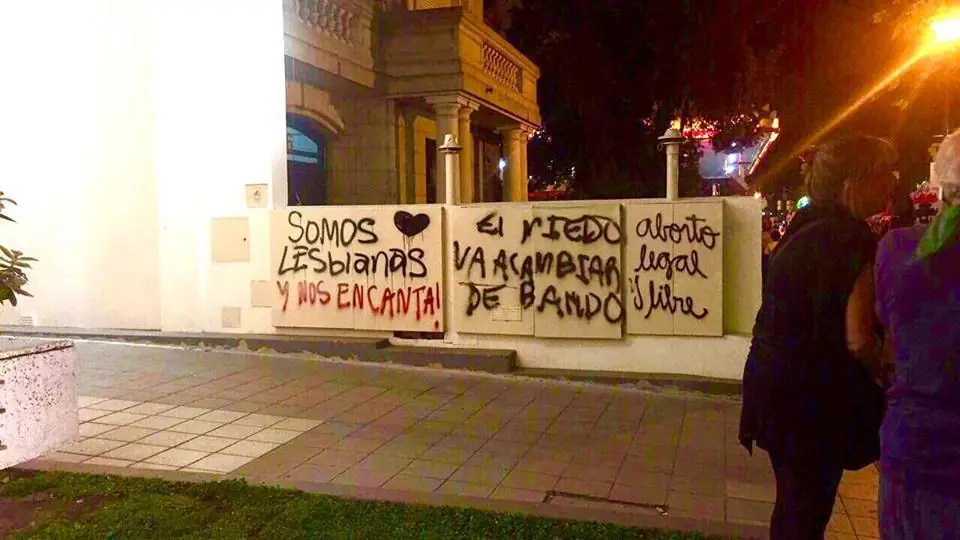 SOMOS
LESBIANAS
Y NOS ENCANTA!
El MIEDO
VA A CAMBIAR
DE BANDO
aborto
legal
y libre